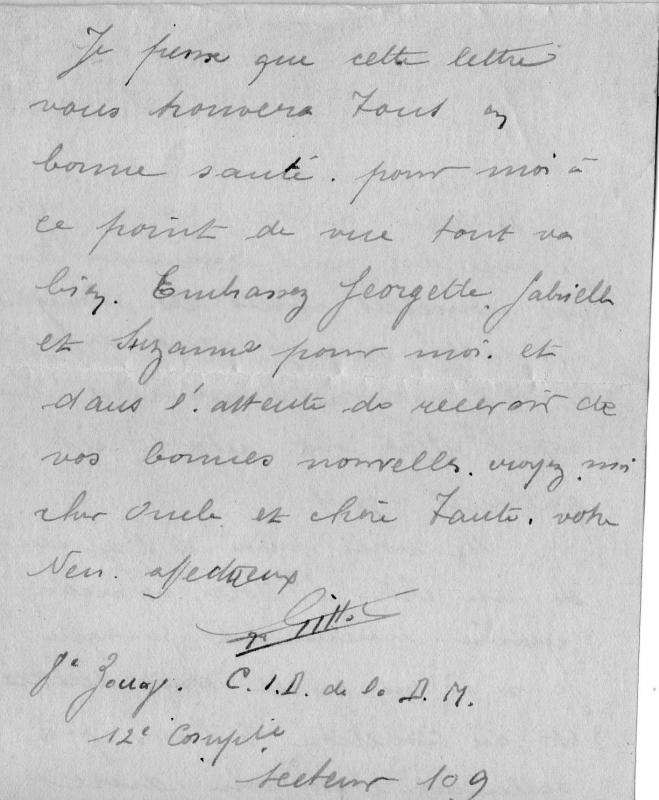 Je pense que cette lettre
vous trouvera tout en
bonne santé. pour moi à
ce point de vue tout va
bien. Embrassez Georgette. Gabrielle
et Suzanne pour moi. et
dans l'attente de recevoir de
vos bonnes nouvelles. croyez moi
cher Oncle et chère Tante. votre
Neveu affectueux
8e Zouaves. C.I.D. de la D.M.
12e Compie
Secteur 109